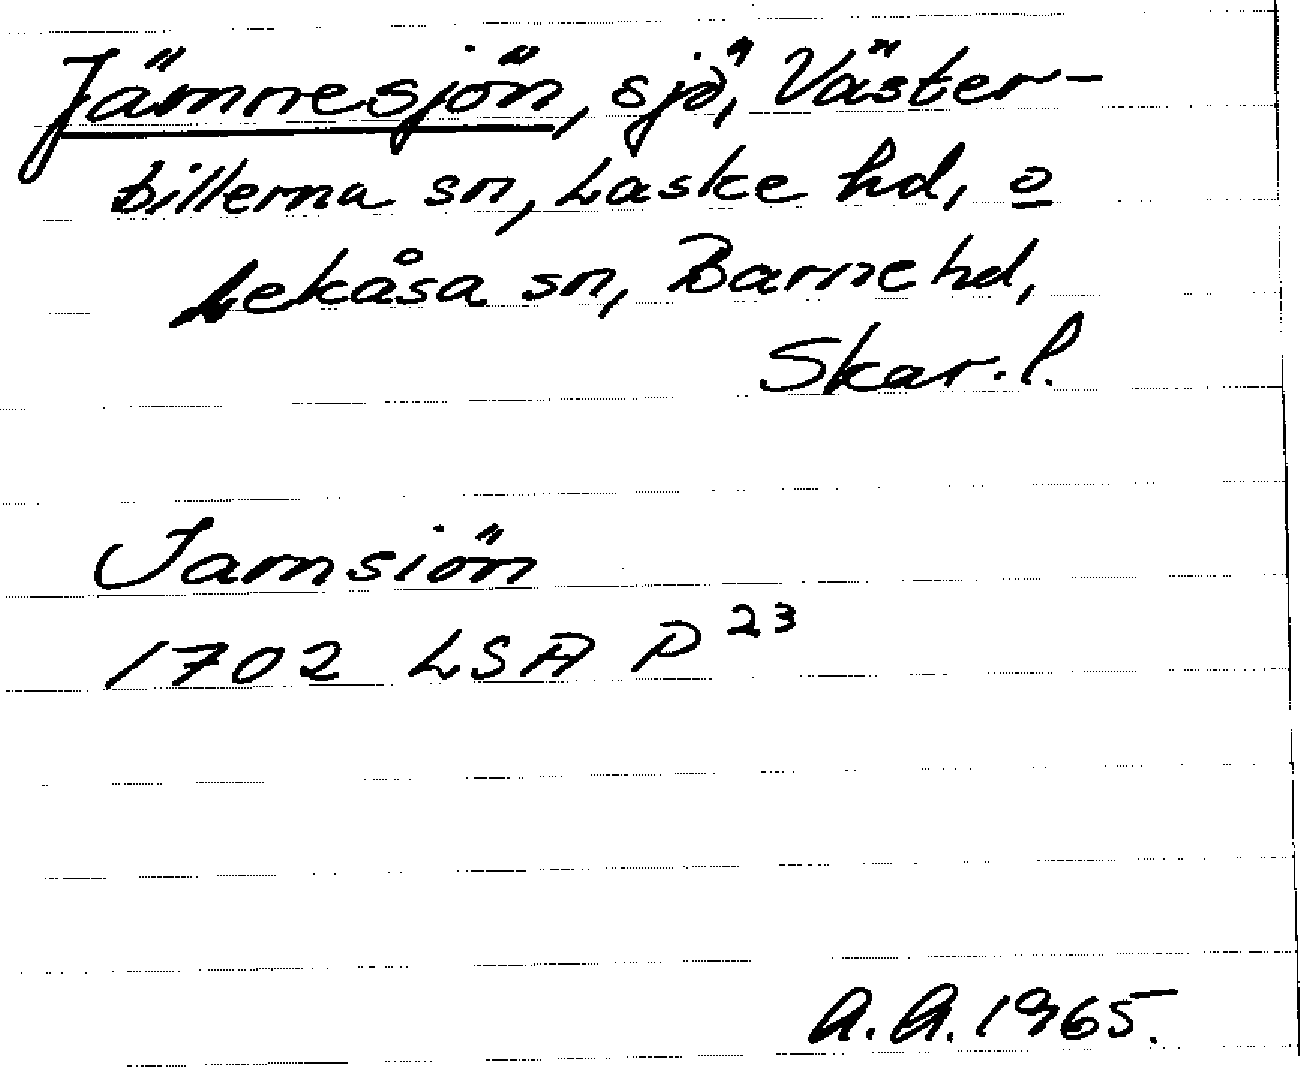 Jämnesjön, sjö, Väster-
bitterna sn, Laske hd, o
Lekåsa sn, Barne hd,
Skar. l.
Jamsiön
1702 LSA P 23
A. A. 1965.